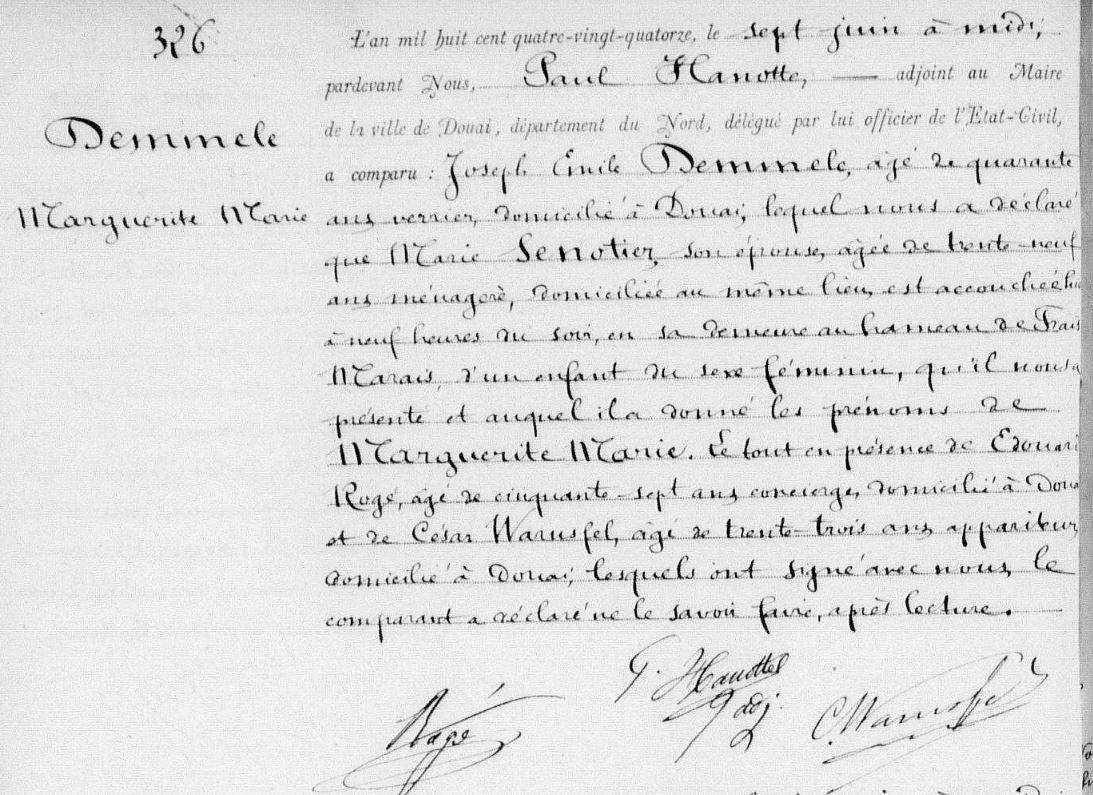 326
L'an mil huit cent quatre-vingt-quatorze, le sept juin à midi,
pardevant Nous, Paul Hanotte, adjoint au Maire
de la ville de Douai, département du Nord, délégué par lui officier de l'Etat-Civil,
Demmele
Marguerite Marie
a comparu : Joseph Emile Demmele, âgé de quarante
ans, verrier, domicilié à Douai, lequel nous a déclaré
que Marie Senotier, son épouse, âgée de trente-neuf
ans, ménagère, domiciliée au même lieu, est accouchée
à neuf heures du soir, en sa demeure au hameau de Frais
Marais, d'un enfant du sexe féminin, qu'il nous a
présenté et auquel il a donné les prénoms de
Marguerite Marie. Le tout en présence de Edouard
Rogé, âgé de cinquante-sept ans, concierge, domicilié à Douai
et de César Warusfel, âgé de trente-trois ans, appariteur,
domicilié à Douai, lesquels ont signé avec nous, le
comparant a déclaré ne le savoir faire, après lecture.
P. Hanotte
adj.
Rogé
C. Warusfel